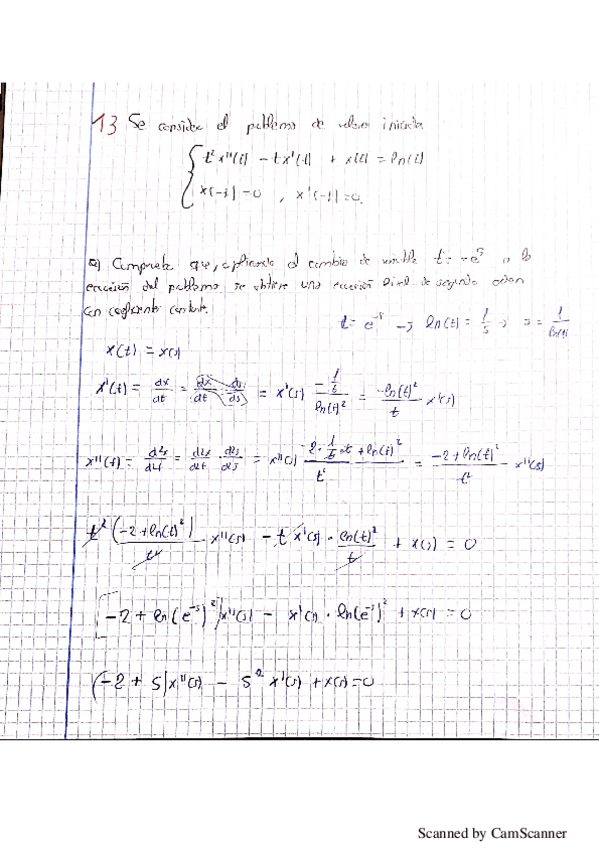 13 Se considera el problema de valores iniciales
t² x''(t) - t x'(t) + x(t) = ln(t)
x(-1) = 0 , x'(-1) = 0.
a) Comprueba que, aplicando el cambio de variable t = -e^s a la
ecuación del problema se obtiene una ecuación lineal de segundo orden
con coeficientes constantes.
t = e^-s → ln(t) = 1/s → s = 1/ln(t)
x(t) = x(s)
x'(t) = dx/dt = dx/dt · ds/ds = x'(s) (-1/t)/ln(t)² = -ln(t)²/t x'(s)
x''(t) = d²x/dt = d²x/d²t · d²s/d²s = x''(s) (-2 · 1/t · t + ln(t)²)/t² = (-2 + ln(t)²)/t² x''(s)
t² (-2 + ln(t)²)/t² x''(s) - t x'(s) · ln(t)²/t + x(s) = 0
[-2 + ln(e^-s)²] x''(s) - x'(s) · ln(e^-s)² + x(s) = 0
(-2 + s) x''(s) - s² x'(s) + x(s) = 0
Scanned by CamScanner